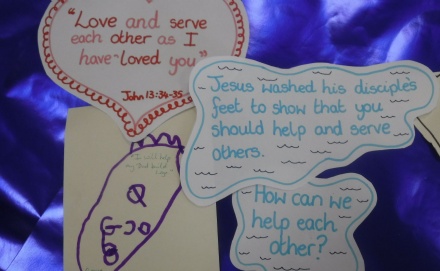 "Love and serve
each other as I
have loved you"
John 13:34-35
Jesus washed his disciples
feet to show that you
should help and serve
others.
How can we
help each
other?